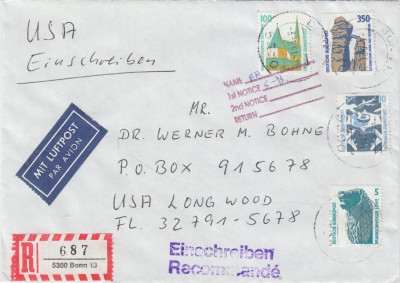 USA
Einschreiben
100
350
DEUTSCHE BUNDESPOST
NAME
1st NOTICE
2nd NOTICE
RETURN
MR.
DR. WERNER M. BOHNE
P.O. BOX 915678
USA LONGWOOD
FL. 32791-5678
MIT LUFTPOST
PAR AVION
5
R
687
5300 Bonn 13
Einschreiben
Recommandé